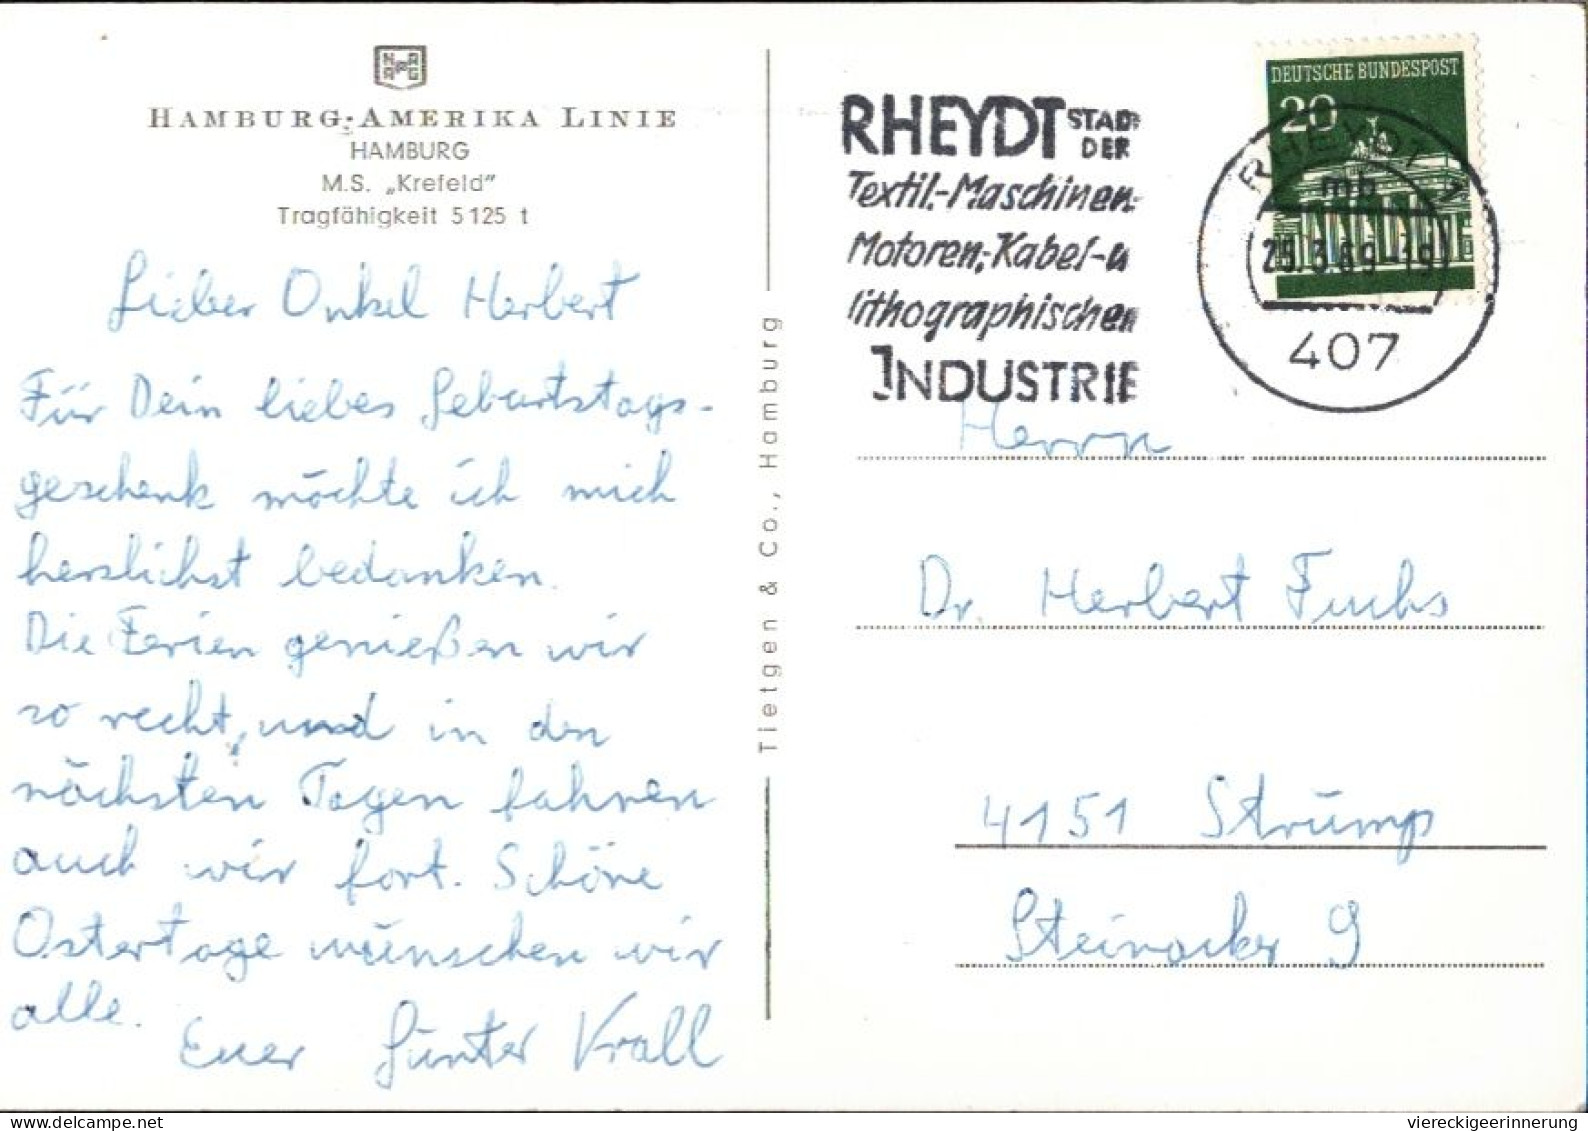 HAPAG
HAMBURG-AMERIKA LINIE
HAMBURG
M.S. „Krefeld"
Tragfähigkeit 5125 t
Lieber Onkel Herbert
Für Dein liebes Geburtstags-
geschenk möchte ich mich
herzlichst bedanken.
Die Ferien genießen wir
so recht, und in den
nächsten Tagen fahren
auch wir fort. Schöne
Ostertage wünschen wir
alle.
Euer Günter Krall
Tietgen & Co., Hamburg
RHEYDT STADT
DER
Textil-Maschinen-
Motoren-, Kabel- u
lithographischen
INDUSTRIE
DEUTSCHE BUNDESPOST
20
RHEYDT 1
mb
29.3.69-19
407
Herrn
Dr. Herbert Fuchs
4151 Strümp
Steinacker 9
viereckigeerinnerung